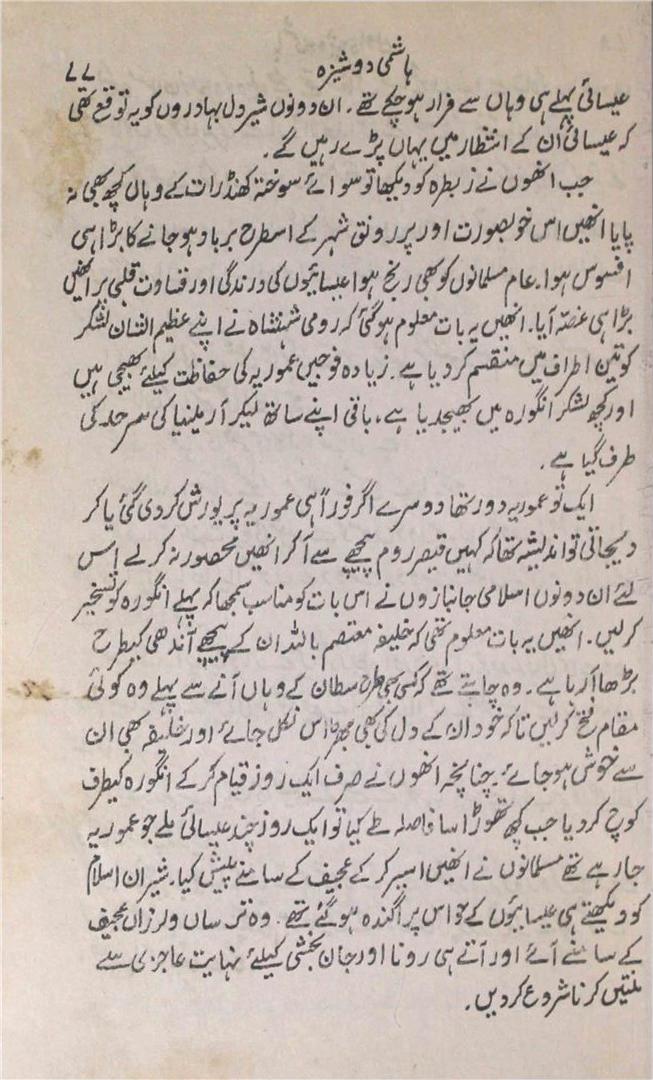 ہاشمی دوشیزہ
۷۷
عیسائی پہلے ہی وہاں سے فرار ہو چکے تھے۔ ان دونوں شیر دل بہادروں کو یہ توقع تھی
کہ عیسائی اُن کے انتظار میں یہاں پڑے رہیں گے۔
جب انھوں نے زبطرہ کو دیکھا تو سوائے سوختہ کھنڈرات کے وہاں کچھ بھی نہ
پایا انھیں اس خوبصورت اور پر رونق شہر کے اسطرح برباد ہو جانے کا بڑا ہی
افسوس ہوا۔ عام مسلمانوں کو بھی رنج ہوا عیسائیوں کی درندگی اور قساوت قلبی پر انھیں
بڑا ہی غصہ آیا۔ انھیں یہ بات معلوم ہو گئی کہ رومی شہنشاہ نے اپنے عظیم الشان لشکر
کو تین اطراف میں منقسم کر دیا ہے۔ زیادہ فوجیں عموریہ کی حفاظت کیلئے بھیجی ہیں
اور کچھ لشکر انگورہ میں بھیجدیا ہے، باقی اپنے ساتھ لیکر آرمینیا کی سرحد کی
طرف گیا ہے۔
ایک تو عموریہ دور تھا دوسرے اگر فوراً ہی عموریہ پر یورش کر دی گئی یا کر
دیجاتی تو اندیشہ تھا کہ کہیں قیصر روم پیچھے سے آ کر انھیں محصور نہ کر لے اس
لئے ان دونوں اسلامی جانبازوں نے اس بات کو مناسب سمجھا کہ پہلے انگورہ کو تسخیر
کر لیں۔ انھیں یہ بات معلوم تھی کہ خلیفہ معتصم باللہ ان کے پیچھے آندھی کیطرح
بڑھا آ رہا ہے۔ وہ چاہتے تھے کہ کسی بھی طرح سلطان کے وہاں آنے سے پہلے وہ کوئی
مقام فتح کر لیں تاکہ خود ان کے دل کی بھی بھڑاس نکل جائے اور خلیفہ بھی ان
سے خوش ہو جائے۔ چنانچہ انھوں نے صرف ایک روز قیام کر کے انگورہ کیطرف
کوچ کر دیا جب کچھ تھوڑا سا فاصلہ طے کیا تو ایک روز چند عیسائی ملے جو عموریہ
جا رہے تھے مسلمانوں نے انھیں اسیر کر کے عجیف کے سامنے پیش کیا۔ شیران اسلام
کو دیکھتے ہی عیسائیوں کے حواس پراگندہ ہو گئے تھے۔ وہ ترساں و لرزاں عجیف
کے سامنے آئے اور آتے ہی رونا اور جان بخشی کیلئے نہایت عاجزی سے
منتیں کرنا شروع کر دیں۔